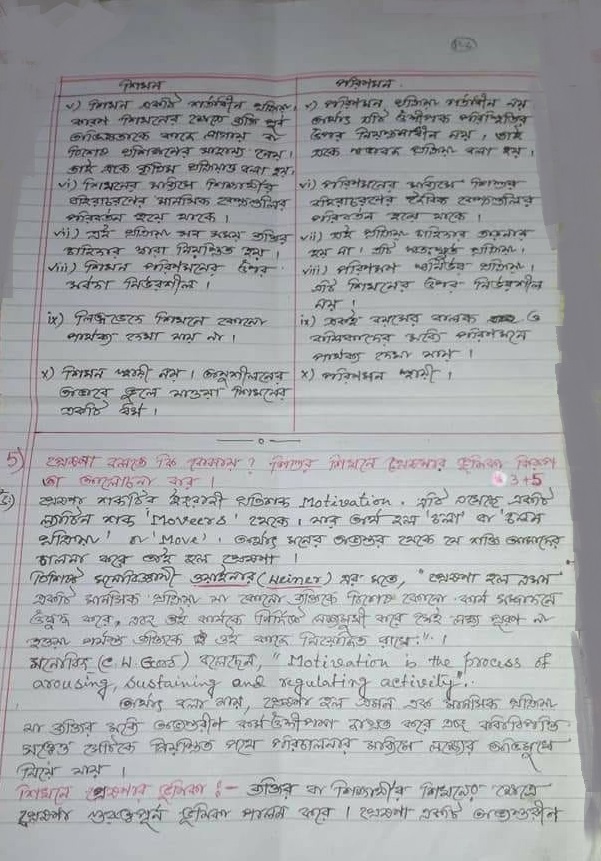 শিখন
পরিণমন
v) শিখন একটি শর্তাধীন প্রক্রিয়া,
কারণ শিখনের ক্ষেত্রে ব্যক্তি পূর্ব
অভিজ্ঞতাকে কাজে লাগায় বা
বিশেষ প্রশিক্ষণের সাহায্য নেয়।
তাই একে কৃত্রিম প্রক্রিয়াও বলা হয়।
v) পরিণমন প্রক্রিয়া শর্তাধীন নয়
অর্থাৎ এটি উদ্দীপক পরিস্থিতির
উপর নিয়ন্ত্রণাধীন নয়, তাই
একে স্বাভাবিক প্রক্রিয়া বলা হয়।
vi) শিখনের মাধ্যমে শিক্ষার্থীর
বহিরাচরণের মানসিক বৈশিষ্ট্যগুলির
পরিবর্তন হয়ে থাকে।
vi) পরিণমনের মাধ্যমে শিশুর
বহিরাচরণের দৈহিক বৈশিষ্ট্যগুলির
পরিবর্তন হয়ে থাকে।
vii) এই প্রক্রিয়া সব সময় ব্যক্তির
চাহিদার দ্বারা নিয়ন্ত্রিত হয়।
vii) এই প্রক্রিয়া চাহিদার তাড়নায়
হয় না। এটি স্বতঃস্ফূর্ত প্রক্রিয়া।
viii) শিখন পরিণমনের উপর
সর্বদা নির্ভরশীল।
viii) পরিণমন স্বনির্ভর প্রক্রিয়া।
এটি শিখনের উপর নির্ভরশীল
নয়।
ix) লিঙ্গভেদে শিখনে কোনো
পার্থক্য দেখা যায় না।
ix) একই বয়সের বালক ও
বালিকাদের মধ্যে পরিণমনে
পার্থক্য দেখা যায়।
x) শিখন স্থায়ী নয়। অনুশীলনের
অভাবে ভুলে যাওয়া শিখনের
একটি ধর্ম।
x) পরিণমন স্থায়ী।
5) প্রেষণা বলতে কি বোঝায়? শিশুর শিখনে প্রেষণার ভূমিকা কিরূপ
তা আলোচনা কর। 3+5
উঃ) প্রেষণা শব্দটির ইংরাজী প্রতিশব্দ Motivation. এটি এসেছে একটি
ল্যাটিন শব্দ 'Moveers' থেকে। যার অর্থ হল 'চলা' বা 'চলন
প্রক্রিয়া' or 'Move'। অর্থাৎ মনের অভ্যন্তর থেকে যে শক্তি আমাদের
চালনা করে তাই হল প্রেষণা।
বিশিষ্ট মনোবিজ্ঞানী ওয়াইনার (Weiner) এর মতে, "প্রেষণা হল এমন
একটি মানসিক প্রক্রিয়া যা কোনো ব্যক্তিকে বিশেষ কোনো কার্য সম্পাদনে
উদ্বুদ্ধ করে, এবং ওই কার্যকে নির্দিষ্ট লক্ষ্যমুখী করে সেই লক্ষ্য পূরণ না
হওয়া পর্যন্ত ব্যক্তিকে ওই কাজে নিয়োজিত রাখে।"।
মনোবিদ (C. W. Good) বলেছেন, "Motivation is the process of
arousing, sustaining and regulating activety".
অর্থাৎ বলা যায়, প্রেষণা হল এমন এক মানসিক প্রক্রিয়া
যা ব্যক্তির মধ্যে অভ্যন্তরীণ কর্ম উদ্দীপনা জাগ্রত করে এবং বাধাবিপত্তি
সত্ত্বেও সেটিকে নিয়ন্ত্রিত পথে পরিচালনার মাধ্যমে লক্ষ্যের অভিমুখে
নিয়ে যায়।
শিখনে প্রেষণার ভূমিকা :- ব্যক্তির বা শিক্ষার্থীর শিখনের ক্ষেত্রে
প্রেষণা গুরুত্বপূর্ণ ভূমিকা পালন করে। প্রেষণা একটি অভ্যন্তরীণ